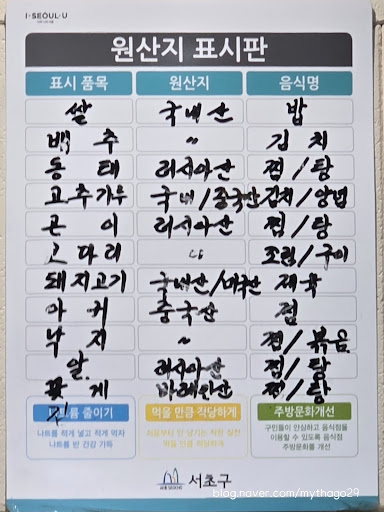 I·SEOUL·U
원산지 표시판
표시 품목 원산지 음식명
쌀 국내산 밥
배 추 〃 김 치
동 태 러시아산 찜 / 탕
고추가루 국내/중국산 김치/양념
곤 이 러시아산 찜 / 탕
코다리 〃 조림/구이
돼지고기 국내산/미국산 제육
아 귀 중국산 찜
낙 지 〃 찜/볶음
알 러시아산 찜/탕
꽃 게 바레인산 찜/탕
줄이기 먹을 만큼 적당하게 주방문화개선
나트륨 적게 넣고 적게 먹자
나트륨 반 건강 가득
처음부터 안 남기는 작은 실천
먹을 만큼 적당하게
구민들이 안심하고 음식점을
이용할 수 있도록 음식점
주방문화를 개선
서초구
blog.naver.com/mythago29